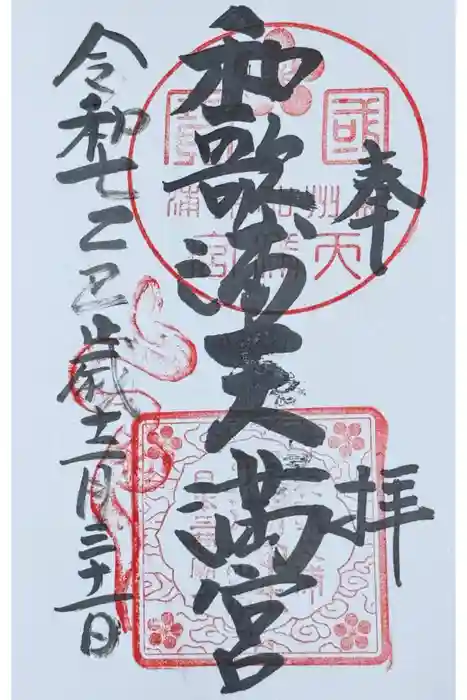 奉拝
和歌浦天満宮
令和七乙巳歳十二月三十一日